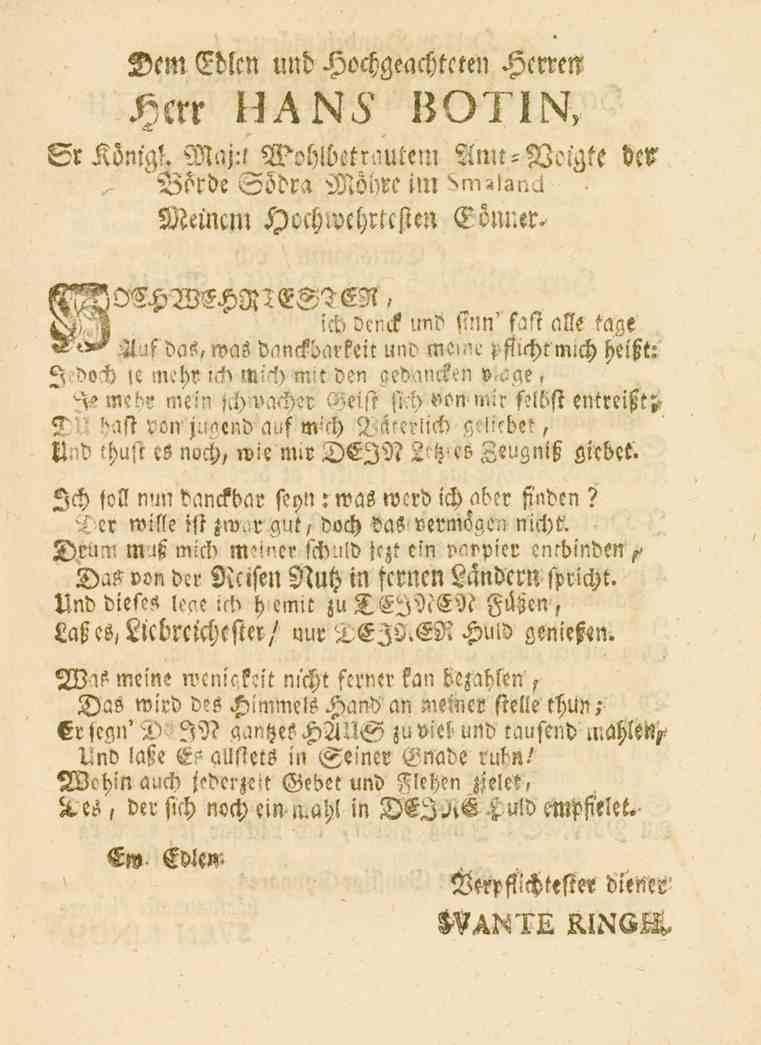 Dem Edlen und Hochgeachteten Herren
Herr HANS BOTIN,
Sr Königl. Maj:t Wohlbetrautem Amt-Voigte der
Börde Södra Möhre im Smaland
Meinem Hochwehrtesten Gönner.
HOCHWEHRTESTER,
ich denck und sinn' fast alle tage
Auf das, was danckbarkeit und meine pflicht mich heißt:
Jedoch je mehr ich mich mit den gedancken plage,
Je mehr mein schwacher Geist sich von mir selbst entreißt;
DU hast von jugend auf mich Väterlich geliebet,
Und thust es noch, wie mir DEIN Letztes Zeugniß giebet.
Ich soll nun danckbar seyn: was werd ich aber finden?
Der wille ist zwar gut, doch das vermögen nicht.
Drum muß mich meiner schuld jezt ein pappier entbinden,
Das von der Reisen Nutz in fernen Ländern spricht.
Und dieses lege ich hiemit zu DEINEN Füßen,
Laß es, Liebreichester/ nur DEINER Huld genießen.
Was meine wenigkeit nicht ferner kan bezahlen,
Das wird des Himmels Hand an meiner stelle thun;
Er segn' DEIN gantzes HAUS zu viel und tausend mahlen,
Und laße Es allstets in Seiner Gnade ruhn!
Wohin auch jederzeit Gebet und Flehen zielet,
Des, der sich noch ein mahl in DEINE Huld empfielet.
Ew. Edlen:
Verpflichtester diener
SVANTE RINGH.